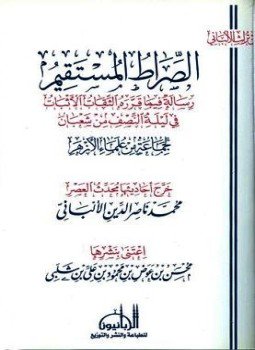 تراث الألباني
الصراط المستقيم
رسالة فيما قرره الثقات الأثبات
في ليلة النصف من شعبان
لجماعة من علماء الأزهر
خرج أحاديثها محدث العصر
محمد ناصر الدين الألباني
اعتنى بنشرها
محسن بن عوض بن محمود بن علي بن شلبي
الربانيون
للطباعة والنشر والتوزيع